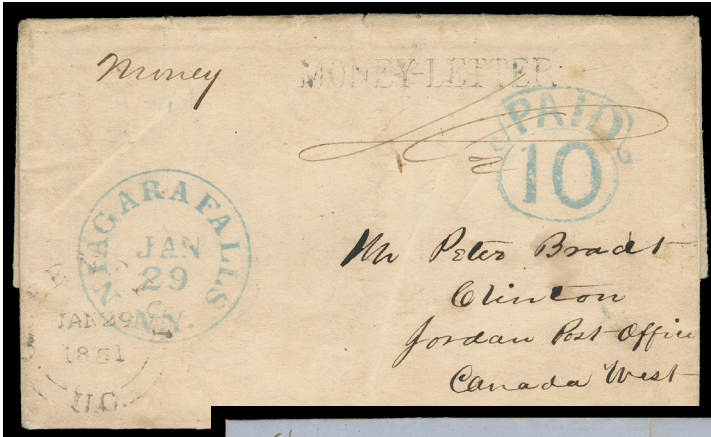 Money
MONEY-LETTER.
PAID
10
NIAGARA FALLS
JAN
29
N.Y.
JAN 29
1851
U.C.
Mr Peter Bradt
Clinton
Jordan Post-Office
Canada West